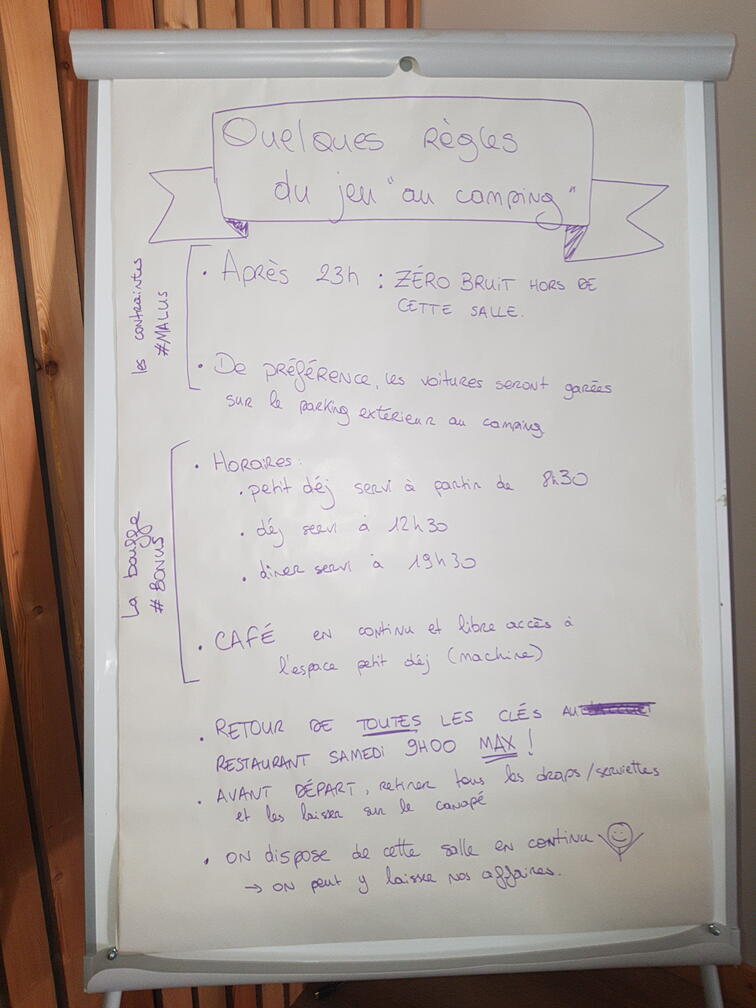 Quelques Règles
du jeu "au camping"
les contraintes
#MALUS
• Après 23h : ZÉRO BRUIT HORS DE
CETTE SALLE.
• De préférence, les voitures seront garées
sur le parking extérieur au camping
La bouffe
#BONUS
• Horaires :
• petit déj servi à partir de 8h30
• déj servi à 12h30
• diner servi à 19h30
• CAFÉ en continu et libre accès à
l'espace petit déj (machine)
• RETOUR DE TOUTES LES CLÉS AU
RESTAURANT SAMEDI 9H00 MAX !
• AVANT DÉPART, retirer tous les draps/serviettes
et les laisser sur le canapé
• ON dispose de cette salle en continu
→ ON peut y laisser nos affaires.